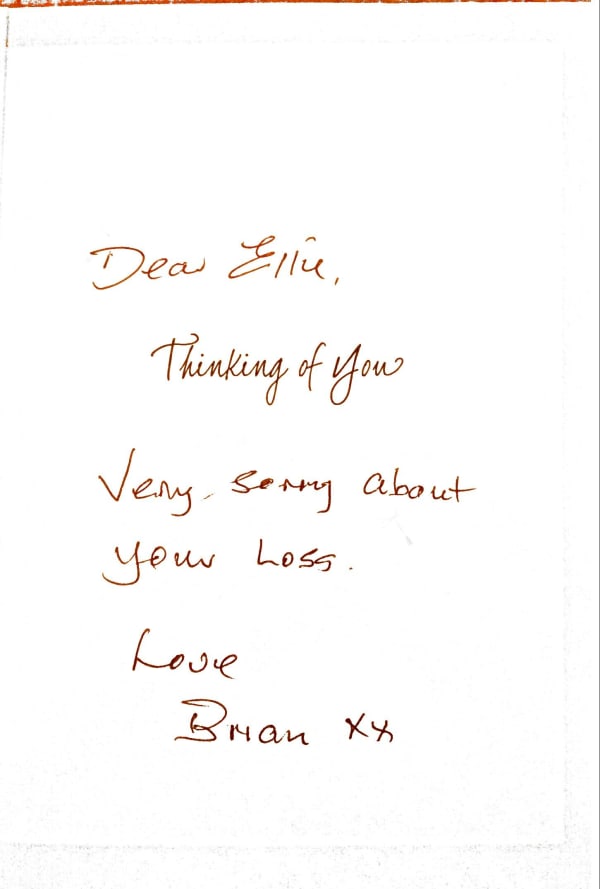 Dear Ellie,
Thinking of You
Very sorry about
your Loss.
Love
Brian xx